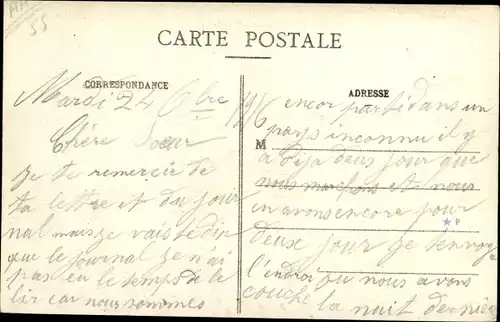 55
CARTE POSTALE
CORRESPONDANCE
ADRESSE
Mardi 24 8bre 1916
Chère Sœur
Je te remercie de
ta lettre et du jour
nal mais je vais te dir
que le journal je n ai
pas eu le temps de le
lir car nous sommes
encor parti dans un
M
pays inconnu il y
a déja deus jour que
nous marchons et nous
en avons encore pour
deux jour je tenvoye
l'endroi ou nous avons
couche la nuit dernier